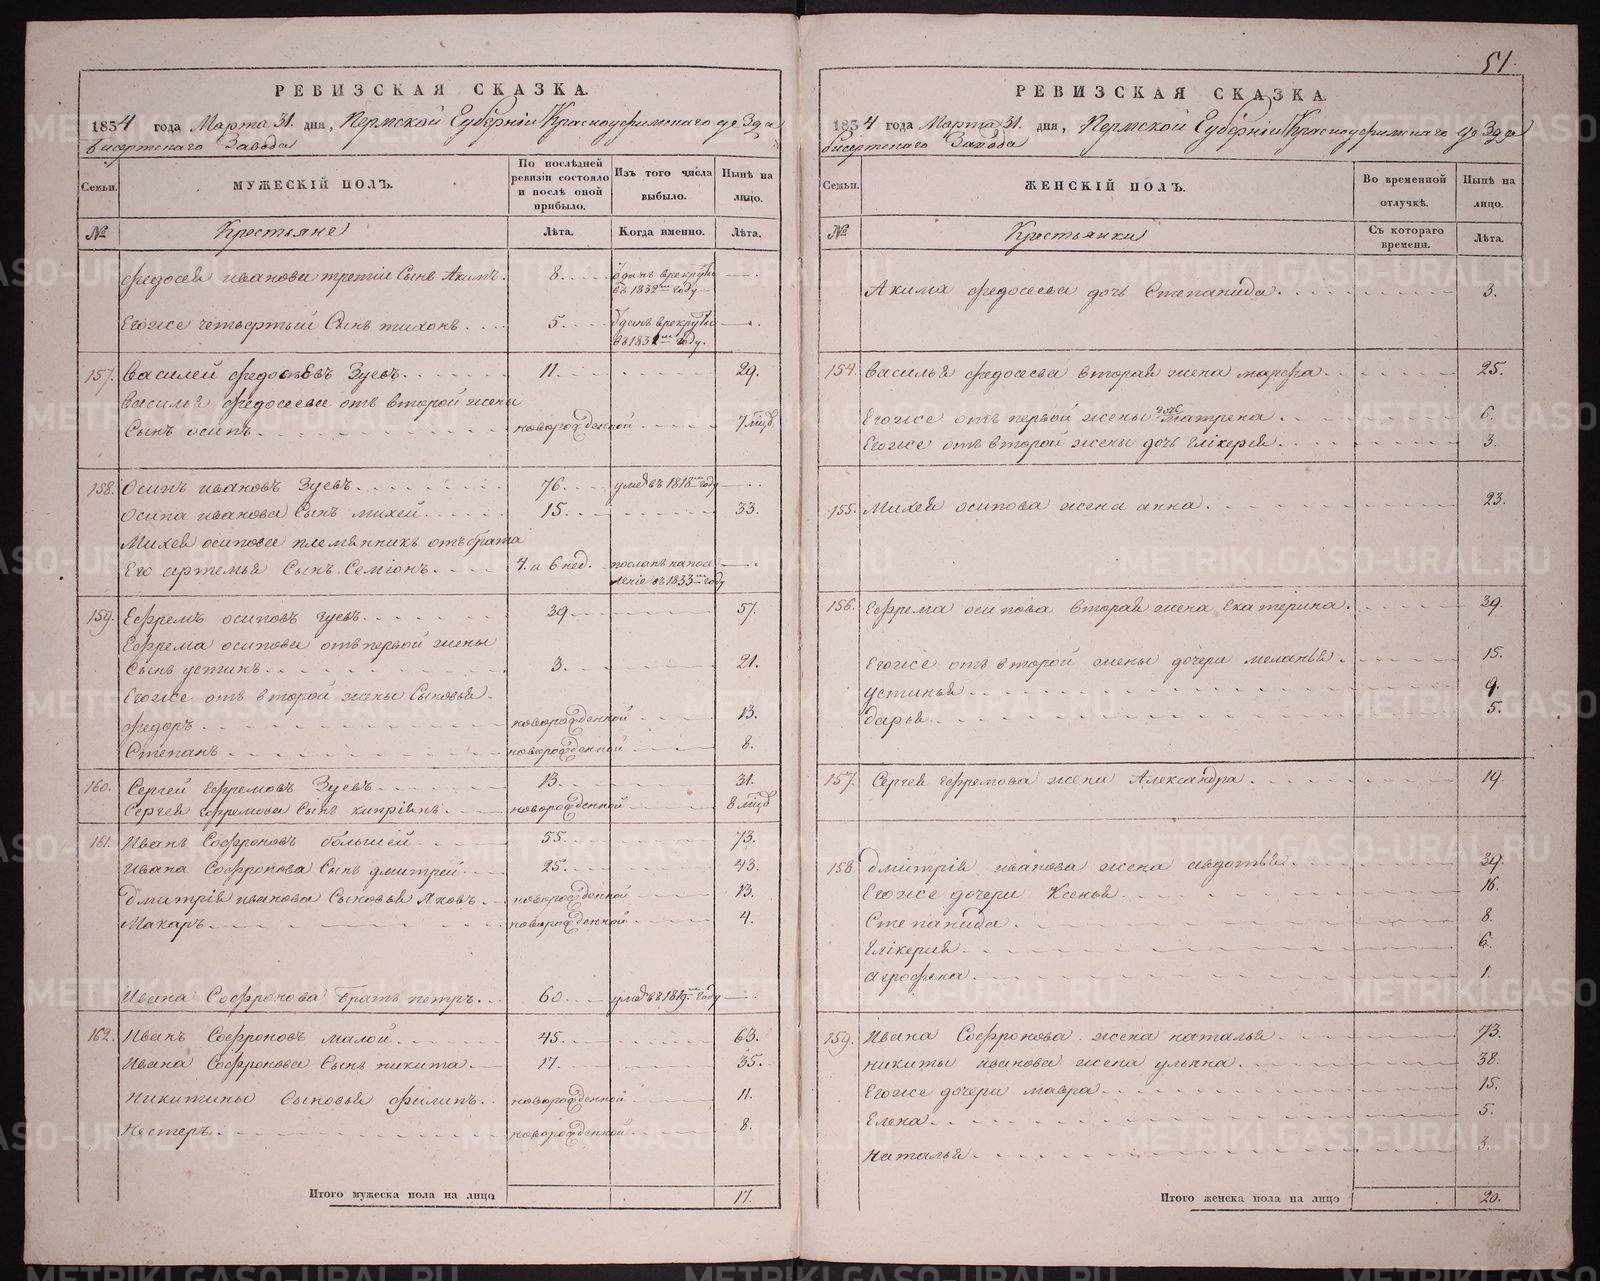 51.
РЕВИЗСКАЯ СКАЗКА.
1834 года Марта 31. дня, Пермской Губернiи Красноуфимскаго уезда
бисертскаго Завода
Семьи.
МУЖЕСКIЙ ПОЛЪ.
По послѣдней ревизiи состояло и послѣ оной прибыло.
Изъ того числа выбыло.
Нынѣ на лицо.
№
Крестьяне
Лѣта.
Когда именно.
Лѣта.
Федосея иванова третiй Сынъ Акимъ. 8. отданъ врекруты
въ 1832м году
Егоже четвертый Сынъ тихонъ 5. отданъ врекруты
в 1831м году.
157. Василей федосѣевъ Зуевъ 11. 29.
Василья федосеева отъ второй жены
Сынъ осипъ новорожденной 7 мцѣ
158. Осипъ ивановъ Зуевъ 76. умре въ 1818м году
Осипа иванова Сынъ михей 15. 33.
Михея осипова племянникъ отъ брата
Его артемья Сынъ Семiонъ 4. и 6 нед. посланъ напосе
ленiе въ 1833м году
159. Ефремъ осиповъ зуевъ 39. 57.
Ефрема осипова отъ первой жены
Сынъ устинъ 3. 21.
Егоже отъ второй жены Сыновья
Федоръ новорожденной 13.
Степанъ новорожденной 8.
160. Сергей Ефремовъ Зуевъ 13. 31.
Сергея Ефремова Сынъ кипрiянъ новорожденной 8 мцѣ
161. Иванъ Софроновъ большей 55. 73.
Ивана Софронова Сынъ дмитрей 25. 43.
Дмитрiя иванова Сыновья Яковъ новорожденной 13.
Макаръ новорожденной 4.
Ивана Софронова братъ петръ 60. умре въ 1819м году
162. Иванъ Софроновъ малой 45. 63.
Ивана Софронова Сынъ никита 17. 35.
Никитины Сыновья филипъ новорожденной 11.
Нестеръ новорожденной 8.
Итого мужеска пола на лицо 17.
РЕВИЗСКАЯ СКАЗКА.
1834 года Марта 31. дня, Пермской Губернiи Красноуфимскаго уезда
бисертскаго Завода
Семьи.
ЖЕНСКIЙ ПОЛЪ.
Во временной отлучкѣ.
Нынѣ на лицо.
№
Крестьянки
Съ котораго времени.
Лѣта.
Акима федосеева дочь Степанида 3.
154. Василья федосеева вторая жена марфа 25.
Егоже отъ первой жены дочь матрена 6.
Егоже отъ второй жены дочь глiкерея 3.
155. Михея осипова жена анна 23.
156. Ефрема осипова вторая жена Екатерина 39.
Егоже отъ второй жены дочери меланья 15.
устинья 9.
дарья 5.
157. Сергея Ефремова жена Александра 19.
158 Дмiтрiя иванова жена авдотья 39.
Егоже дочери Ксенья 16.
Степанида 8.
глiкерия 6.
агрофена 1.
159. Ивана Софронова жена наталья 73.
никиты Иванова жена ульяна 38.
Егоже дочери мавра 15.
Елена 5.
Наталья 3.
Итого женска пола на лицо 20.
METRIKI.GASO-URAL.RU